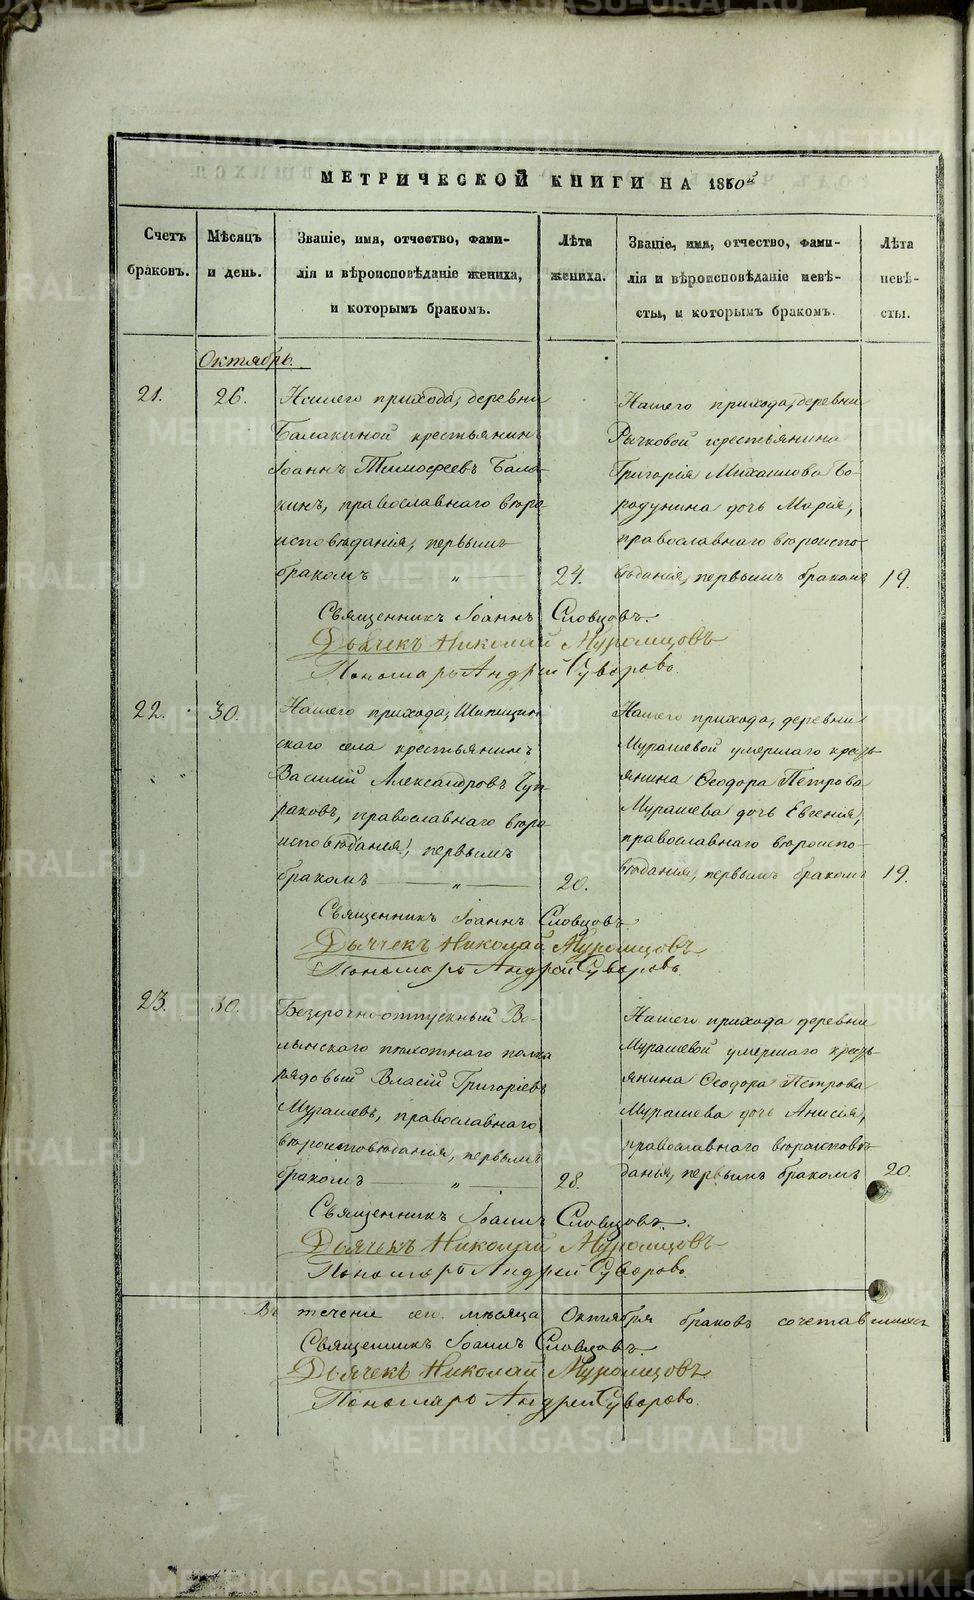 МЕТРИЧЕСКОЙ КНИГИ НА 1860й
Счетъ браковъ.
Мѣсяцъ и день.
Званіе, имя, отчество, фами-
лія и вѣроисповѣданіе жениха,
и которымъ бракомъ.
Лѣта жениха.
Званіе, имя, отчество, фами-
лія и вѣроисповѣданіе невѣ-
сты, и которымъ бракомъ.
Лѣта невѣ-
сты.
Октябрь.
21.
26.
Нашего прихода, деревни
Балакиной крестьянинъ
Іоаннъ Тимофеевъ Бала-
кинъ, православнаго вѣро
исповѣданія, первымъ
бракомъ „
24.
Нашего прихода, деревни
Рычковой крестьянина
Григорія Михаилова Бо-
родунина дочь Марія,
православнаго вѣроиспо-
вѣданія, первымъ бракомъ
19.
Священникъ Іоаннъ Словцовъ.
Дьячекъ Николай Муромцовъ
Пономарь Андрей Суворовъ.
22.
30.
Нашего прихода, Шипицин
скаго села крестьянинъ
Василій Александровъ Чуп-
раковъ, православнаго вѣро
исповѣданія, первымъ
бракомъ „
20.
Нашего прихода, деревни
Мурашевой умершаго кресть-
янина Ѳеодора Петрова
Мурашева дочь Евгенія,
православнаго вѣроиспо-
вѣданія, первымъ бракомъ
19.
Священникъ Іоаннъ Словцовъ
Дьячекъ Николай Муромцовъ
Пономарь Андрей Суворовъ
23.
30.
Безсрочно-отпускный Во-
лынскаго пѣхотнаго полка
рядовый Власій Григоріевъ
Мурашевъ, православнаго
вѣроисповѣданія, первымъ
бракомъ „
28.
Нашего прихода деревни
Мурашевой умершаго кресть-
янина Ѳеодора Петрова
Мурашева дочь Анисія,
православнаго вѣроисповѣ-
данія, первымъ бракомъ
20.
Священникъ Іоаннъ Словцовъ.
Дьячекъ Николай Муромцовъ
Пономарь Андрей Суворовъ
Въ теченіе сего мѣсяца Октября браковъ сочетавшихся
Священникъ Іоаннъ Словцовъ.
Дьячекъ Николай Муромцовъ
Пономарь Андрей Суворовъ.
METRIKI.GASO-URAL.RU